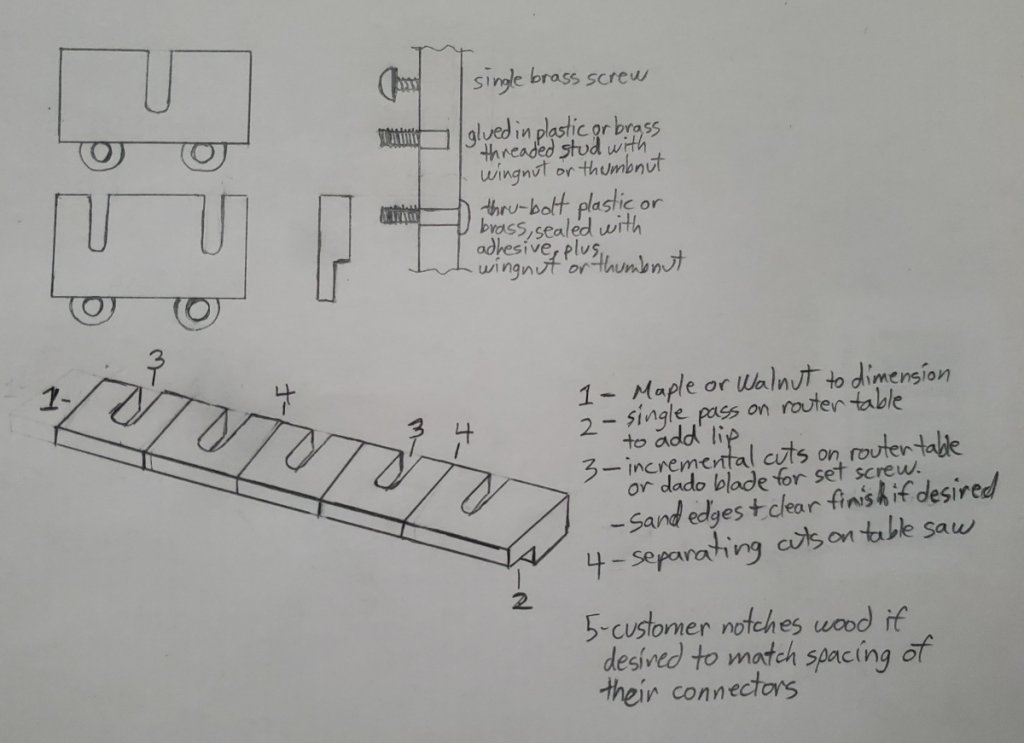 single brass screw
glued in plastic or brass
threaded stud with
wingnut or thumbnut
thru-bolt plastic or
brass, sealed with
adhesive, plus
wingnut or thumbnut
3
1-
4
3
4
2
1- Maple or Walnut to dimension
2- single pass on router table
to add lip
3- incremental cuts on router table
or dado blade for set screw.
- Sand edges + clear finish if desired
4- separating cuts on table saw
5-customer notches wood if
desired to match spacing of
their connectors